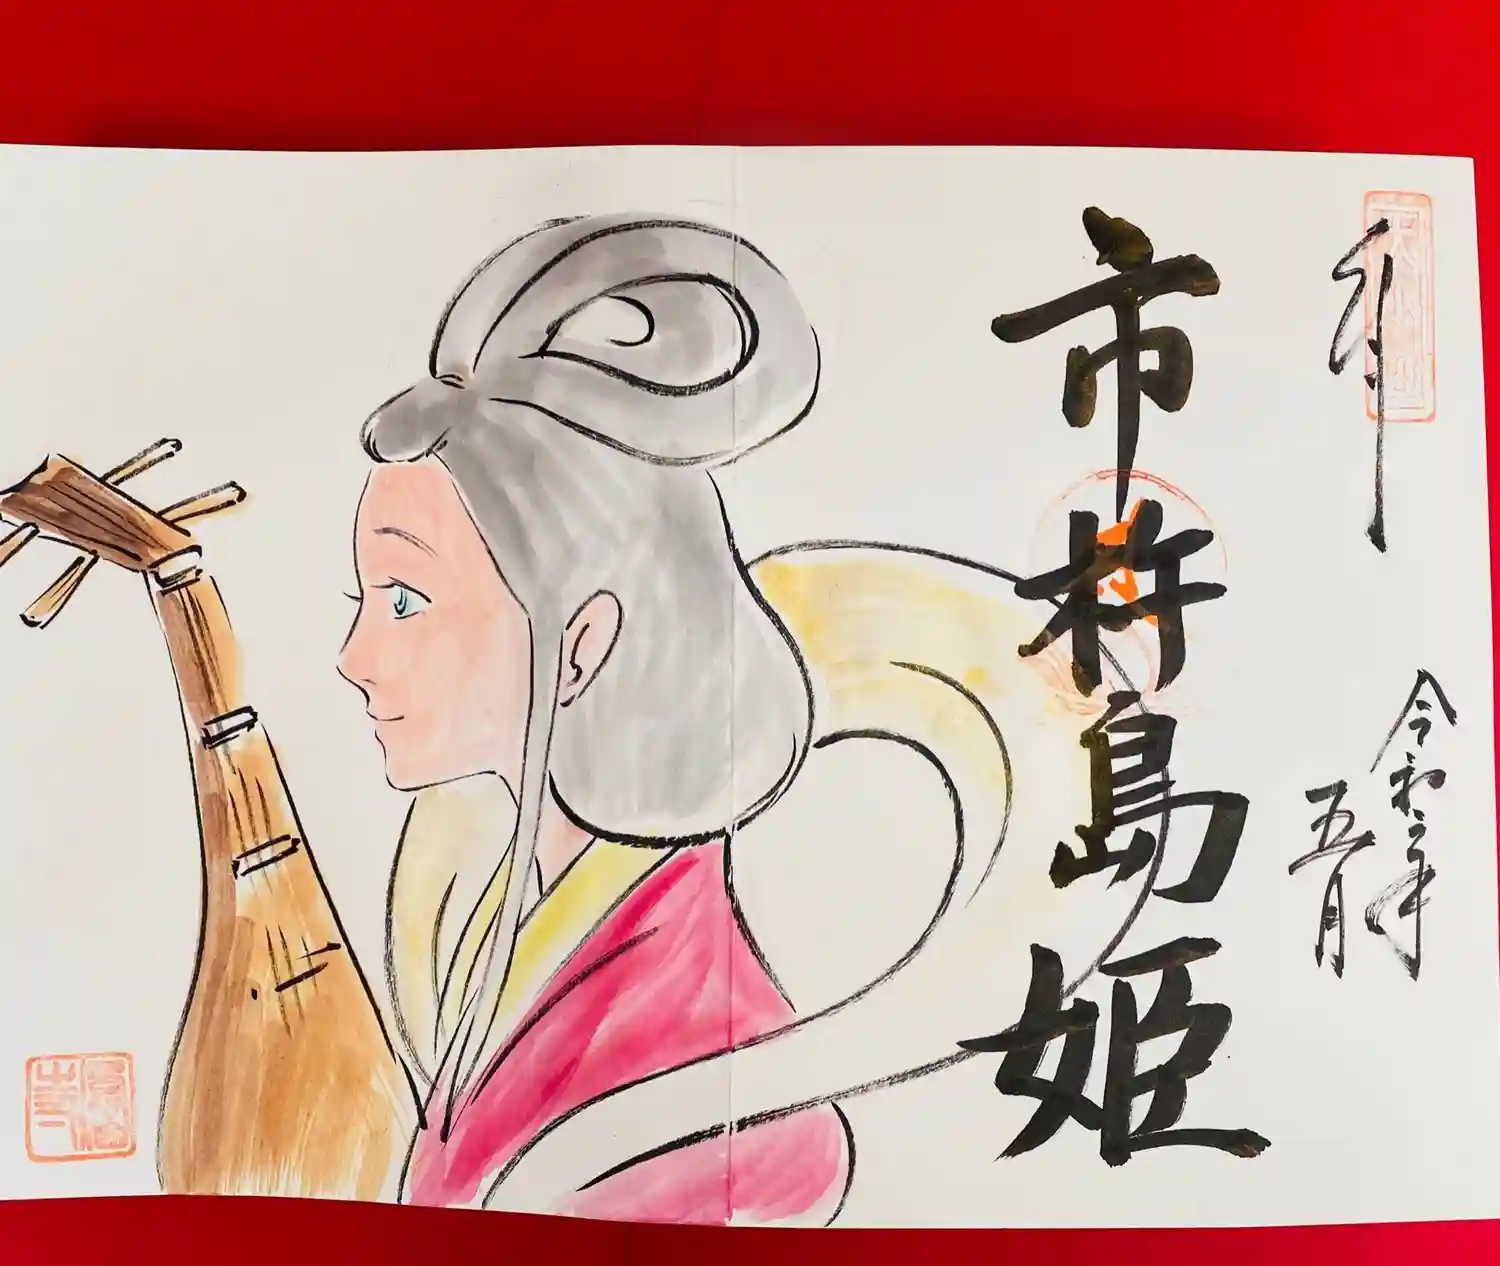 奉拝
市杵島姫
令和二年
五月